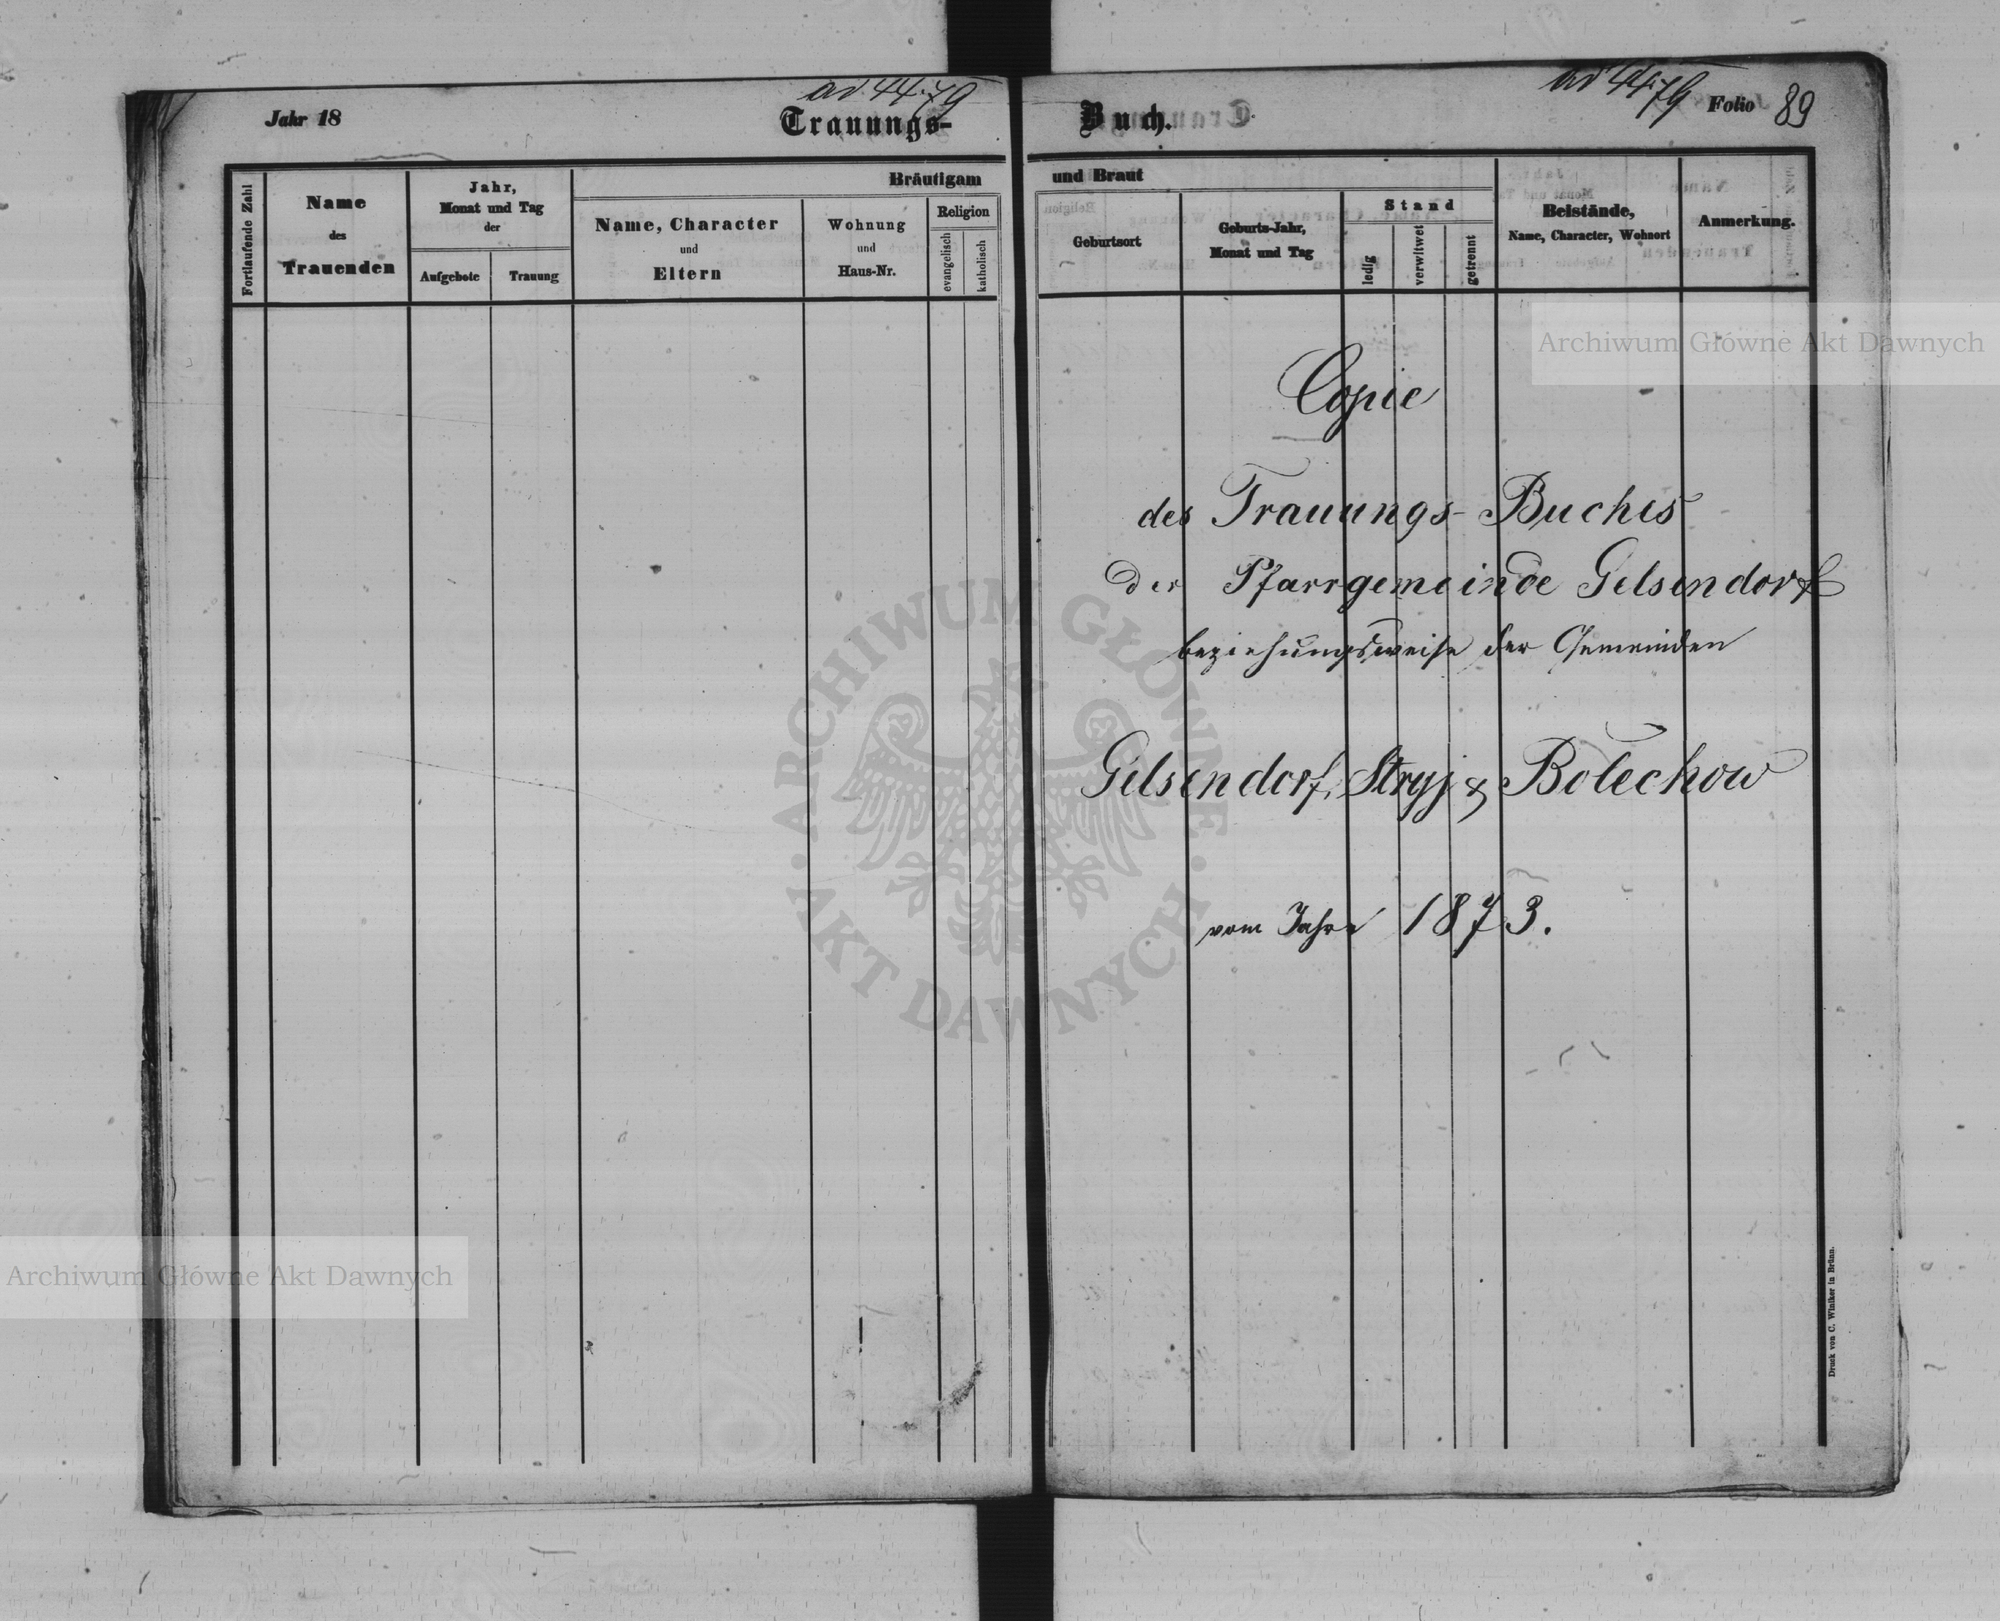 ad 44.79
ad 44.79
Jahr 18
Trauungs-
Buch.
Folio 89
Fortlaufende Zahl
Name
des
Trauenden
Jahr,
Monat und Tag
der
Aufgebote
Trauung
Bräutigam
Name, Character
und
Eltern
Wohnung
und
Haus-Nr.
Religion
evangelisch
katholisch
und Braut
Geburtsort
Geburts-Jahr,
Monat und Tag
Stand
ledig
verwitwet
getrennt
Beistände,
Name, Character, Wohnort
Anmerkung.
Copie
des Trauungs-Buches
der Pfarrgemeinde Gelsendorf
beziehungsweise der Gemeinden
Gelsendorf, Stryj & Bolechow
vom Jahre 1873.
Druck von C. Winiker in Brünn.
Archiwum Główne Akt Dawnych
ARCHIWUM GŁÓWNE AKT DAWNYCH
Archiwum Główne Akt Dawnych